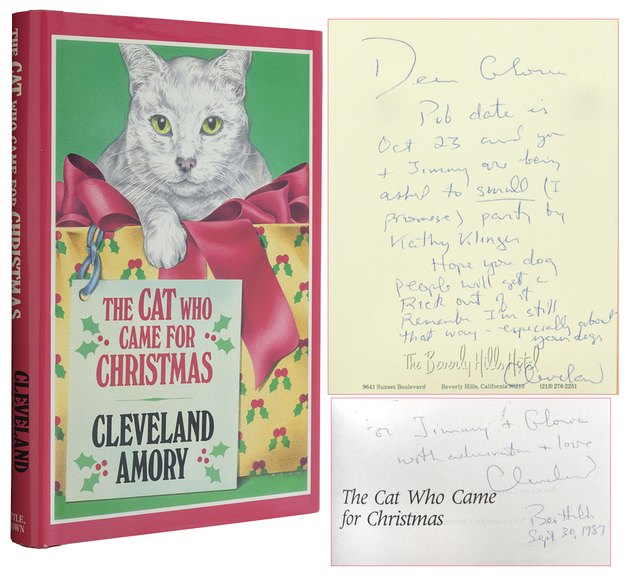 THE CAT WHO CAME FOR CHRISTMAS
CLEVELAND
THE CAT WHO
CAME FOR
CHRISTMAS
CLEVELAND
AMORY
Dear Gloria
Pub date is
Oct 23 and you
+ Jimmy are being
asked to small (I
promise) party by
Kathy Klinger
Hope you dog
people will get a
kick out of it
Remember I'm still
that way - especially about
your dogs
Cleveland
The Beverly Hills Hotel
9641 Sunset Boulevard Beverly Hills, California 90210 (213) 276-2251
For Jimmy + Gloria
with admiration + love
Cleveland
The Cat Who Came
for Christmas
Bev Hills
Sept 30, 1987